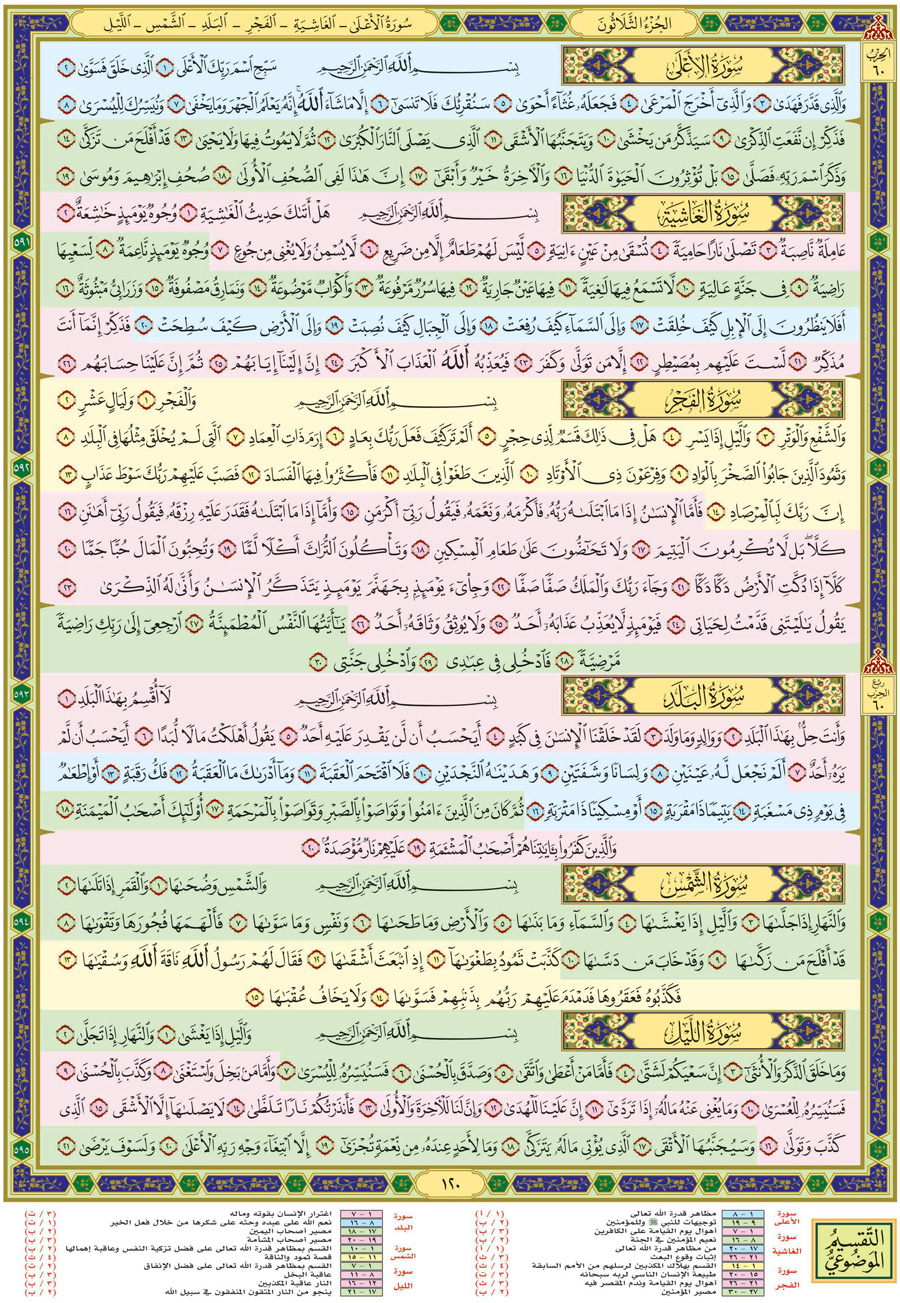 سُورَةُ الأَعْلَى - الغَاشِيَةِ - الفَجْرِ - البَلَدِ - الشَّمْسِ - اللَّيْلِ
الجُزْءُ الثَّلَاثُونَ
الحِزْب ٦٠
سُورَةُ الأَعْلَى بِسْمِ ٱللَّهِ ٱلرَّحْمَٰنِ ٱلرَّحِيمِ سَبِّحِ ٱسْمَ رَبِّكَ ٱلْأَعْلَى ١ ٱلَّذِى خَلَقَ فَسَوَّىٰ ٢
وَٱلَّذِى قَدَّرَ فَهَدَىٰ ٣ وَٱلَّذِىٓ أَخْرَجَ ٱلْمَرْعَىٰ ٤ فَجَعَلَهُۥ غُثَآءً أَحْوَىٰ ٥ سَنُقْرِئُكَ فَلَا تَنسَىٰٓ ٦ إِلَّا مَا شَآءَ ٱللَّهُ إِنَّهُۥ يَعْلَمُ ٱلْجَهْرَ وَمَا يَخْفَىٰ ٧ وَنُيَسِّرُكَ لِلْيُسْرَىٰ ٨
فَذَكِّرْ إِن نَّفَعَتِ ٱلذِّكْرَىٰ ٩ سَيَذَّكَّرُ مَن يَخْشَىٰ ١٠ وَيَتَجَنَّبُهَا ٱلْأَشْقَى ١١ ٱلَّذِى يَصْلَى ٱلنَّارَ ٱلْكُبْرَىٰ ١٢ ثُمَّ لَا يَمُوتُ فِيهَا وَلَا يَحْيَىٰ ١٣ قَدْ أَفْلَحَ مَن تَزَكَّىٰ ١٤
وَذَكَرَ ٱسْمَ رَبِّهِۦ فَصَلَّىٰ ١٥ بَلْ تُؤْثِرُونَ ٱلْحَيَوٰةَ ٱلدُّنْيَا ١٦ وَٱلْـَٔاخِرَةُ خَيْرٌ وَأَبْقَىٰٓ ١٧ إِنَّ هَٰذَا لَفِى ٱلصُّحُفِ ٱلْأُولَىٰ ١٨ صُحُفِ إِبْرَٰهِيمَ وَمُوسَىٰ ١٩
سُورَةُ الغَاشِيَةِ بِسْمِ ٱللَّهِ ٱلرَّحْمَٰنِ ٱلرَّحِيمِ هَلْ أَتَىٰكَ حَدِيثُ ٱلْغَٰشِيَةِ ١ وُجُوهٌ يَوْمَئِذٍ خَٰشِعَةٌ ٢
عَامِلَةٌ نَّاصِبَةٌ ٣ تَصْلَىٰ نَارًا حَامِيَةً ٤ تُسْقَىٰ مِنْ عَيْنٍ ءَانِيَةٍ ٥ لَّيْسَ لَهُمْ طَعَامٌ إِلَّا مِن ضَرِيعٍ ٦ لَّا يُسْمِنُ وَلَا يُغْنِى مِن جُوعٍ ٧ وُجُوهٌ يَوْمَئِذٍ نَّاعِمَةٌ ٨ لِّسَعْيِهَا
رَاضِيَةٌ ٩ فِى جَنَّةٍ عَالِيَةٍ ١٠ لَّا تَسْمَعُ فِيهَا لَٰغِيَةً ١١ فِيهَا عَيْنٌ جَارِيَةٌ ١٢ فِيهَا سُرُرٌ مَّرْفُوعَةٌ ١٣ وَأَكْوَابٌ مَّوْضُوعَةٌ ١٤ وَنَمَارِقُ مَصْفُوفَةٌ ١٥ وَزَرَابِىُّ مَبْثُوثَةٌ ١٦
أَفَلَا يَنظُرُونَ إِلَى ٱلْإِبِلِ كَيْفَ خُلِقَتْ ١٧ وَإِلَى ٱلسَّمَآءِ كَيْفَ رُفِعَتْ ١٨ وَإِلَى ٱلْجِبَالِ كَيْفَ نُصِبَتْ ١٩ وَإِلَى ٱلْأَرْضِ كَيْفَ سُطِحَتْ ٢٠ فَذَكِّرْ إِنَّمَآ أَنتَ
مُذَكِّرٌ ٢١ لَّسْتَ عَلَيْهِم بِمُصَيْطِرٍ ٢٢ إِلَّا مَن تَوَلَّىٰ وَكَفَرَ ٢٣ فَيُعَذِّبُهُ ٱللَّهُ ٱلْعَذَابَ ٱلْأَكْبَرَ ٢٤ إِنَّ إِلَيْنَآ إِيَابَهُمْ ٢٥ ثُمَّ إِنَّ عَلَيْنَا حِسَابَهُم ٢٦
سُورَةُ الفَجْرِ بِسْمِ ٱللَّهِ ٱلرَّحْمَٰنِ ٱلرَّحِيمِ وَٱلْفَجْرِ ١ وَلَيَالٍ عَشْرٍ ٢
وَٱلشَّفْعِ وَٱلْوَتْرِ ٣ وَٱلَّيْلِ إِذَا يَسْرِ ٤ هَلْ فِى ذَٰلِكَ قَسَمٌ لِّذِى حِجْرٍ ٥ أَلَمْ تَرَ كَيْفَ فَعَلَ رَبُّكَ بِعَادٍ ٦ إِرَمَ ذَاتِ ٱلْعِمَادِ ٧ ٱلَّتِى لَمْ يُخْلَقْ مِثْلُهَا فِى ٱلْبِلَٰدِ ٨
وَثَمُودَ ٱلَّذِينَ جَابُوا۟ ٱلصَّخْرَ بِٱلْوَادِ ٩ وَفِرْعَوْنَ ذِى ٱلْأَوْتَادِ ١٠ ٱلَّذِينَ طَغَوْا۟ فِى ٱلْبِلَٰدِ ١١ فَأَكْثَرُوا۟ فِيهَا ٱلْفَسَادَ ١٢ فَصَبَّ عَلَيْهِمْ رَبُّكَ سَوْطَ عَذَابٍ ١٣
إِنَّ رَبَّكَ لَبِٱلْمِرْصَادِ ١٤ فَأَمَّا ٱلْإِنسَٰنُ إِذَا مَا ٱبْتَلَىٰهُ رَبُّهُۥ فَأَكْرَمَهُۥ وَنَعَّمَهُۥ فَيَقُولُ رَبِّىٓ أَكْرَمَنِ ١٥ وَأَمَّآ إِذَا مَا ٱبْتَلَىٰهُ فَقَدَرَ عَلَيْهِ رِزْقَهُۥ فَيَقُولُ رَبِّىٓ أَهَٰنَنِ ١٦
كَلَّا بَل لَّا تُكْرِمُونَ ٱلْيَتِيمَ ١٧ وَلَا تَحَٰٓضُّونَ عَلَىٰ طَعَامِ ٱلْمِسْكِينِ ١٨ وَتَأْكُلُونَ ٱلتُّرَاثَ أَكْلًا لَّمًّا ١٩ وَتُحِبُّونَ ٱلْمَالَ حُبًّا جَمًّا ٢٠
كَلَّآ إِذَا دُكَّتِ ٱلْأَرْضُ دَكًّا دَكًّا ٢١ وَجَآءَ رَبُّكَ وَٱلْمَلَكُ صَفًّا صَفًّا ٢٢ وَجِا۟ىٓءَ يَوْمَئِذٍۭ بِجَهَنَّمَ يَوْمَئِذٍ يَتَذَكَّرُ ٱلْإِنسَٰنُ وَأَنَّىٰ لَهُ ٱلذِّكْرَىٰ ٢٣
يَقُولُ يَٰلَيْتَنِى قَدَّمْتُ لِحَيَاتِى ٢٤ فَيَوْمَئِذٍ لَّا يُعَذِّبُ عَذَابَهُۥٓ أَحَدٌ ٢٥ وَلَا يُوثِقُ وَثَاقَهُۥٓ أَحَدٌ ٢٦ يَٰٓأَيَّتُهَا ٱلنَّفْسُ ٱلْمُطْمَئِنَّةُ ٢٧ ٱرْجِعِىٓ إِلَىٰ رَبِّكِ رَاضِيَةً
مَّرْضِيَّةً ٢٨ فَٱدْخُلِى فِى عِبَٰدِى ٢٩ وَٱدْخُلِى جَنَّتِى ٣٠
ربع الحزب ٦٠
سُورَةُ البَلَدِ بِسْمِ ٱللَّهِ ٱلرَّحْمَٰنِ ٱلرَّحِيمِ لَآ أُقْسِمُ بِهَٰذَا ٱلْبَلَدِ ١
وَأَنتَ حِلٌّۢ بِهَٰذَا ٱلْبَلَدِ ٢ وَوَالِدٍ وَمَا وَلَدَ ٣ لَقَدْ خَلَقْنَا ٱلْإِنسَٰنَ فِى كَبَدٍ ٤ أَيَحْسَبُ أَن لَّن يَقْدِرَ عَلَيْهِ أَحَدٌ ٥ يَقُولُ أَهْلَكْتُ مَالًا لُّبَدًا ٦ أَيَحْسَبُ أَن لَّمْ
يَرَهُۥٓ أَحَدٌ ٧ أَلَمْ نَجْعَل لَّهُۥ عَيْنَيْنِ ٨ وَلِسَانًا وَشَفَتَيْنِ ٩ وَهَدَيْنَٰهُ ٱلنَّجْدَيْنِ ١٠ فَلَا ٱقْتَحَمَ ٱلْعَقَبَةَ ١١ وَمَآ أَدْرَىٰكَ مَا ٱلْعَقَبَةُ ١٢ فَكُّ رَقَبَةٍ ١٣ أَوْ إِطْعَٰمٌ
فِى يَوْمٍ ذِى مَسْغَبَةٍ ١٤ يَتِيمًا ذَا مَقْرَبَةٍ ١٥ أَوْ مِسْكِينًا ذَا مَتْرَبَةٍ ١٦ ثُمَّ كَانَ مِنَ ٱلَّذِينَ ءَامَنُوا۟ وَتَوَاصَوْا۟ بِٱلصَّبْرِ وَتَوَاصَوْا۟ بِٱلْمَرْحَمَةِ ١٧ أُو۟لَٰٓئِكَ أَصْحَٰبُ ٱلْمَيْمَنَةِ ١٨
وَٱلَّذِينَ كَفَرُوا۟ بِـَٔايَٰتِنَا هُمْ أَصْحَٰبُ ٱلْمَشْـَٔمَةِ ١٩ عَلَيْهِمْ نَارٌ مُّؤْصَدَةٌۢ ٢٠
سُورَةُ الشَّمْسِ بِسْمِ ٱللَّهِ ٱلرَّحْمَٰنِ ٱلرَّحِيمِ وَٱلشَّمْسِ وَضُحَىٰهَا ١ وَٱلْقَمَرِ إِذَا تَلَىٰهَا ٢
وَٱلنَّهَارِ إِذَا جَلَّىٰهَا ٣ وَٱلَّيْلِ إِذَا يَغْشَىٰهَا ٤ وَٱلسَّمَآءِ وَمَا بَنَىٰهَا ٥ وَٱلْأَرْضِ وَمَا طَحَىٰهَا ٦ وَنَفْسٍ وَمَا سَوَّىٰهَا ٧ فَأَلْهَمَهَا فُجُورَهَا وَتَقْوَىٰهَا ٨
قَدْ أَفْلَحَ مَن زَكَّىٰهَا ٩ وَقَدْ خَابَ مَن دَسَّىٰهَا ١٠ كَذَّبَتْ ثَمُودُ بِطَغْوَىٰهَآ ١١ إِذِ ٱنۢبَعَثَ أَشْقَىٰهَا ١٢ فَقَالَ لَهُمْ رَسُولُ ٱللَّهِ نَاقَةَ ٱللَّهِ وَسُقْيَٰهَا ١٣
فَكَذَّبُوهُ فَعَقَرُوهَا فَدَمْدَمَ عَلَيْهِمْ رَبُّهُم بِذَنۢبِهِمْ فَسَوَّىٰهَا ١٤ وَلَا يَخَافُ عُقْبَٰهَا ١٥
سُورَةُ اللَّيْلِ بِسْمِ ٱللَّهِ ٱلرَّحْمَٰنِ ٱلرَّحِيمِ وَٱلَّيْلِ إِذَا يَغْشَىٰ ١ وَٱلنَّهَارِ إِذَا تَجَلَّىٰ ٢
وَمَا خَلَقَ ٱلذَّكَرَ وَٱلْأُنثَىٰٓ ٣ إِنَّ سَعْيَكُمْ لَشَتَّىٰ ٤ فَأَمَّا مَنْ أَعْطَىٰ وَٱتَّقَىٰ ٥ وَصَدَّقَ بِٱلْحُسْنَىٰ ٦ فَسَنُيَسِّرُهُۥ لِلْيُسْرَىٰ ٧ وَأَمَّا مَنۢ بَخِلَ وَٱسْتَغْنَىٰ ٨ وَكَذَّبَ بِٱلْحُسْنَىٰ ٩
فَسَنُيَسِّرُهُۥ لِلْعُسْرَىٰ ١٠ وَمَا يُغْنِى عَنْهُ مَالُهُۥٓ إِذَا تَرَدَّىٰٓ ١١ إِنَّ عَلَيْنَا لَلْهُدَىٰ ١٢ وَإِنَّ لَنَا لَلْـَٔاخِرَةَ وَٱلْأُولَىٰ ١٣ فَأَنذَرْتُكُمْ نَارًا تَلَظَّىٰ ١٤ لَا يَصْلَىٰهَآ إِلَّا ٱلْأَشْقَى ١٥ ٱلَّذِى
كَذَّبَ وَتَوَلَّىٰ ١٦ وَسَيُجَنَّبُهَا ٱلْأَتْقَى ١٧ ٱلَّذِى يُؤْتِى مَالَهُۥ يَتَزَكَّىٰ ١٨ وَمَا لِأَحَدٍ عِندَهُۥ مِن نِّعْمَةٍ تُجْزَىٰٓ ١٩ إِلَّا ٱبْتِغَآءَ وَجْهِ رَبِّهِ ٱلْأَعْلَىٰ ٢٠ وَلَسَوْفَ يَرْضَىٰ ٢١
٥٩١
٥٩٢
٥٩٣
٥٩٤
٥٩٥
١٢٠
التَّقْسِيمُ المَوْضُوعِيُّ
سورة الأعلى
١ - ٨ مظاهر قدرة الله تعالى
٩ - ١٩ توجيهات للنبي ﷺ وللمؤمنين
سورة الغاشية
١ - ٧ أهوال يوم القيامة على الكافرين
٨ - ١٦ نعيم المؤمنين في الجنة
١٧ - ٢٠ من مظاهر قدرة الله تعالى
٢١ - ٢٦ إثبات وقوع البعث
سورة الفجر
١ - ١٤ القسم بهلاك المكذبين لرسلهم من الأمم السابقة
١٥ - ٢٠ طبيعة الإنسان الناسي لربه سبحانه
٢١ - ٢٦ أهوال يوم القيامة وندم المقصر فيه
٢٧ - ٣٠ مصير المؤمنين
سورة البلد
١ - ٧ اغترار الإنسان بقوته وماله
٨ - ١٦ نعم الله على عبده وحثه على شكرها من خلال فعل الخير
١٧ - ١٨ مصير أصحاب اليمين
١٩ - ٢٠ مصير أصحاب المشأمة
سورة الشمس
١ - ١٠ القسم بمظاهر قدرة الله تعالى على فضل تزكية النفس وعاقبة إهمالها
١١ - ١٥ قصة ثمود والناقة
سورة الليل
١ - ٧ القسم بمظاهر قدرة الله تعالى على فضل الإنفاق
٨ - ١١ عاقبة البخل
١٢ - ١٦ النار عاقبة المكذبين
١٧ - ٢١ ينجو من النار المتقون المنفقون في سبيل الله